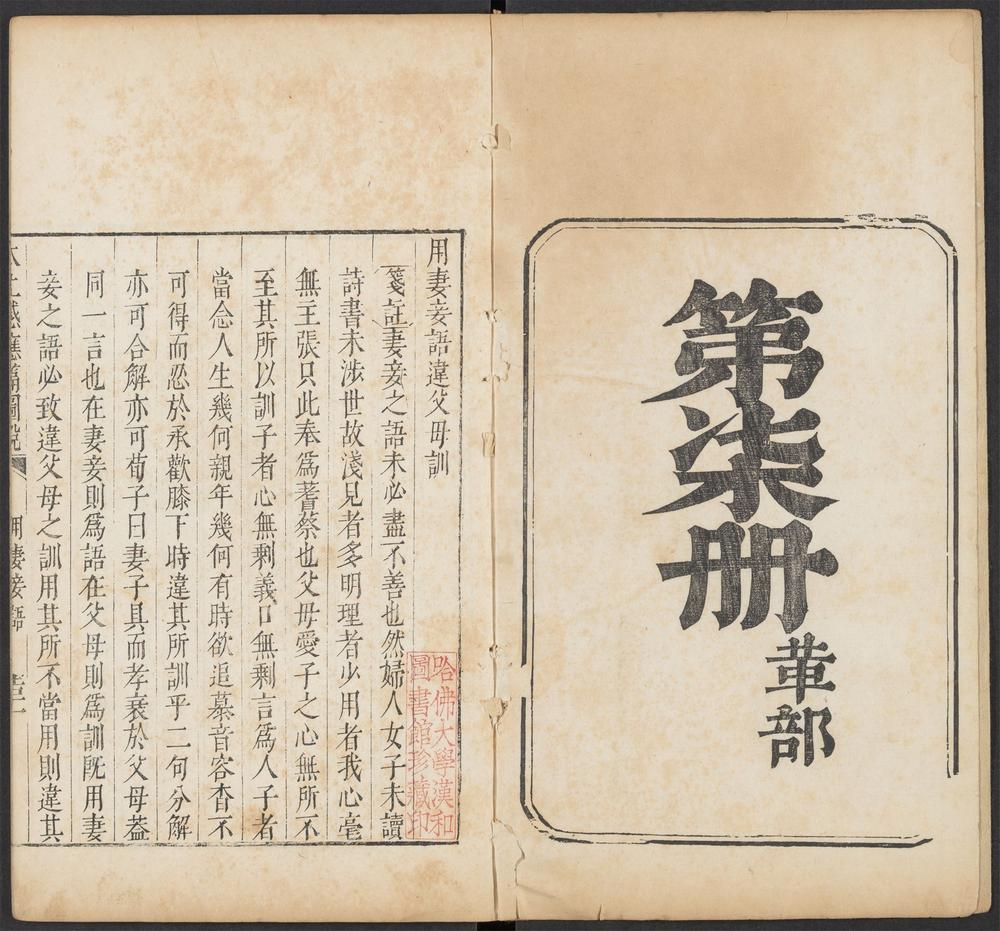 第柒册
革部
用妻妾語違父母訓
箋註妻妾之語未必盡不善也然婦人女子未讀
詩書未涉世故淺見者多明理者少用者我心毫
無主張只此奉爲蓍蔡也父母愛子之心無所不
至其所以訓子者心無剩義口無剩言爲人子者
當念人生幾何親年幾何有時欲追慕音容杳不
可得而忍於承歡膝下時違其所訓乎二句分解
亦可合解亦可荀子曰妻子具而孝衰於父母葢
同一言也在妻妾則爲語在父母則爲訓旣用妻
妾之語必致違父母之訓用其所不當用則違其
太上感應篇圖說
用妻妾語
哈佛大學漢和
圖書館珍藏印